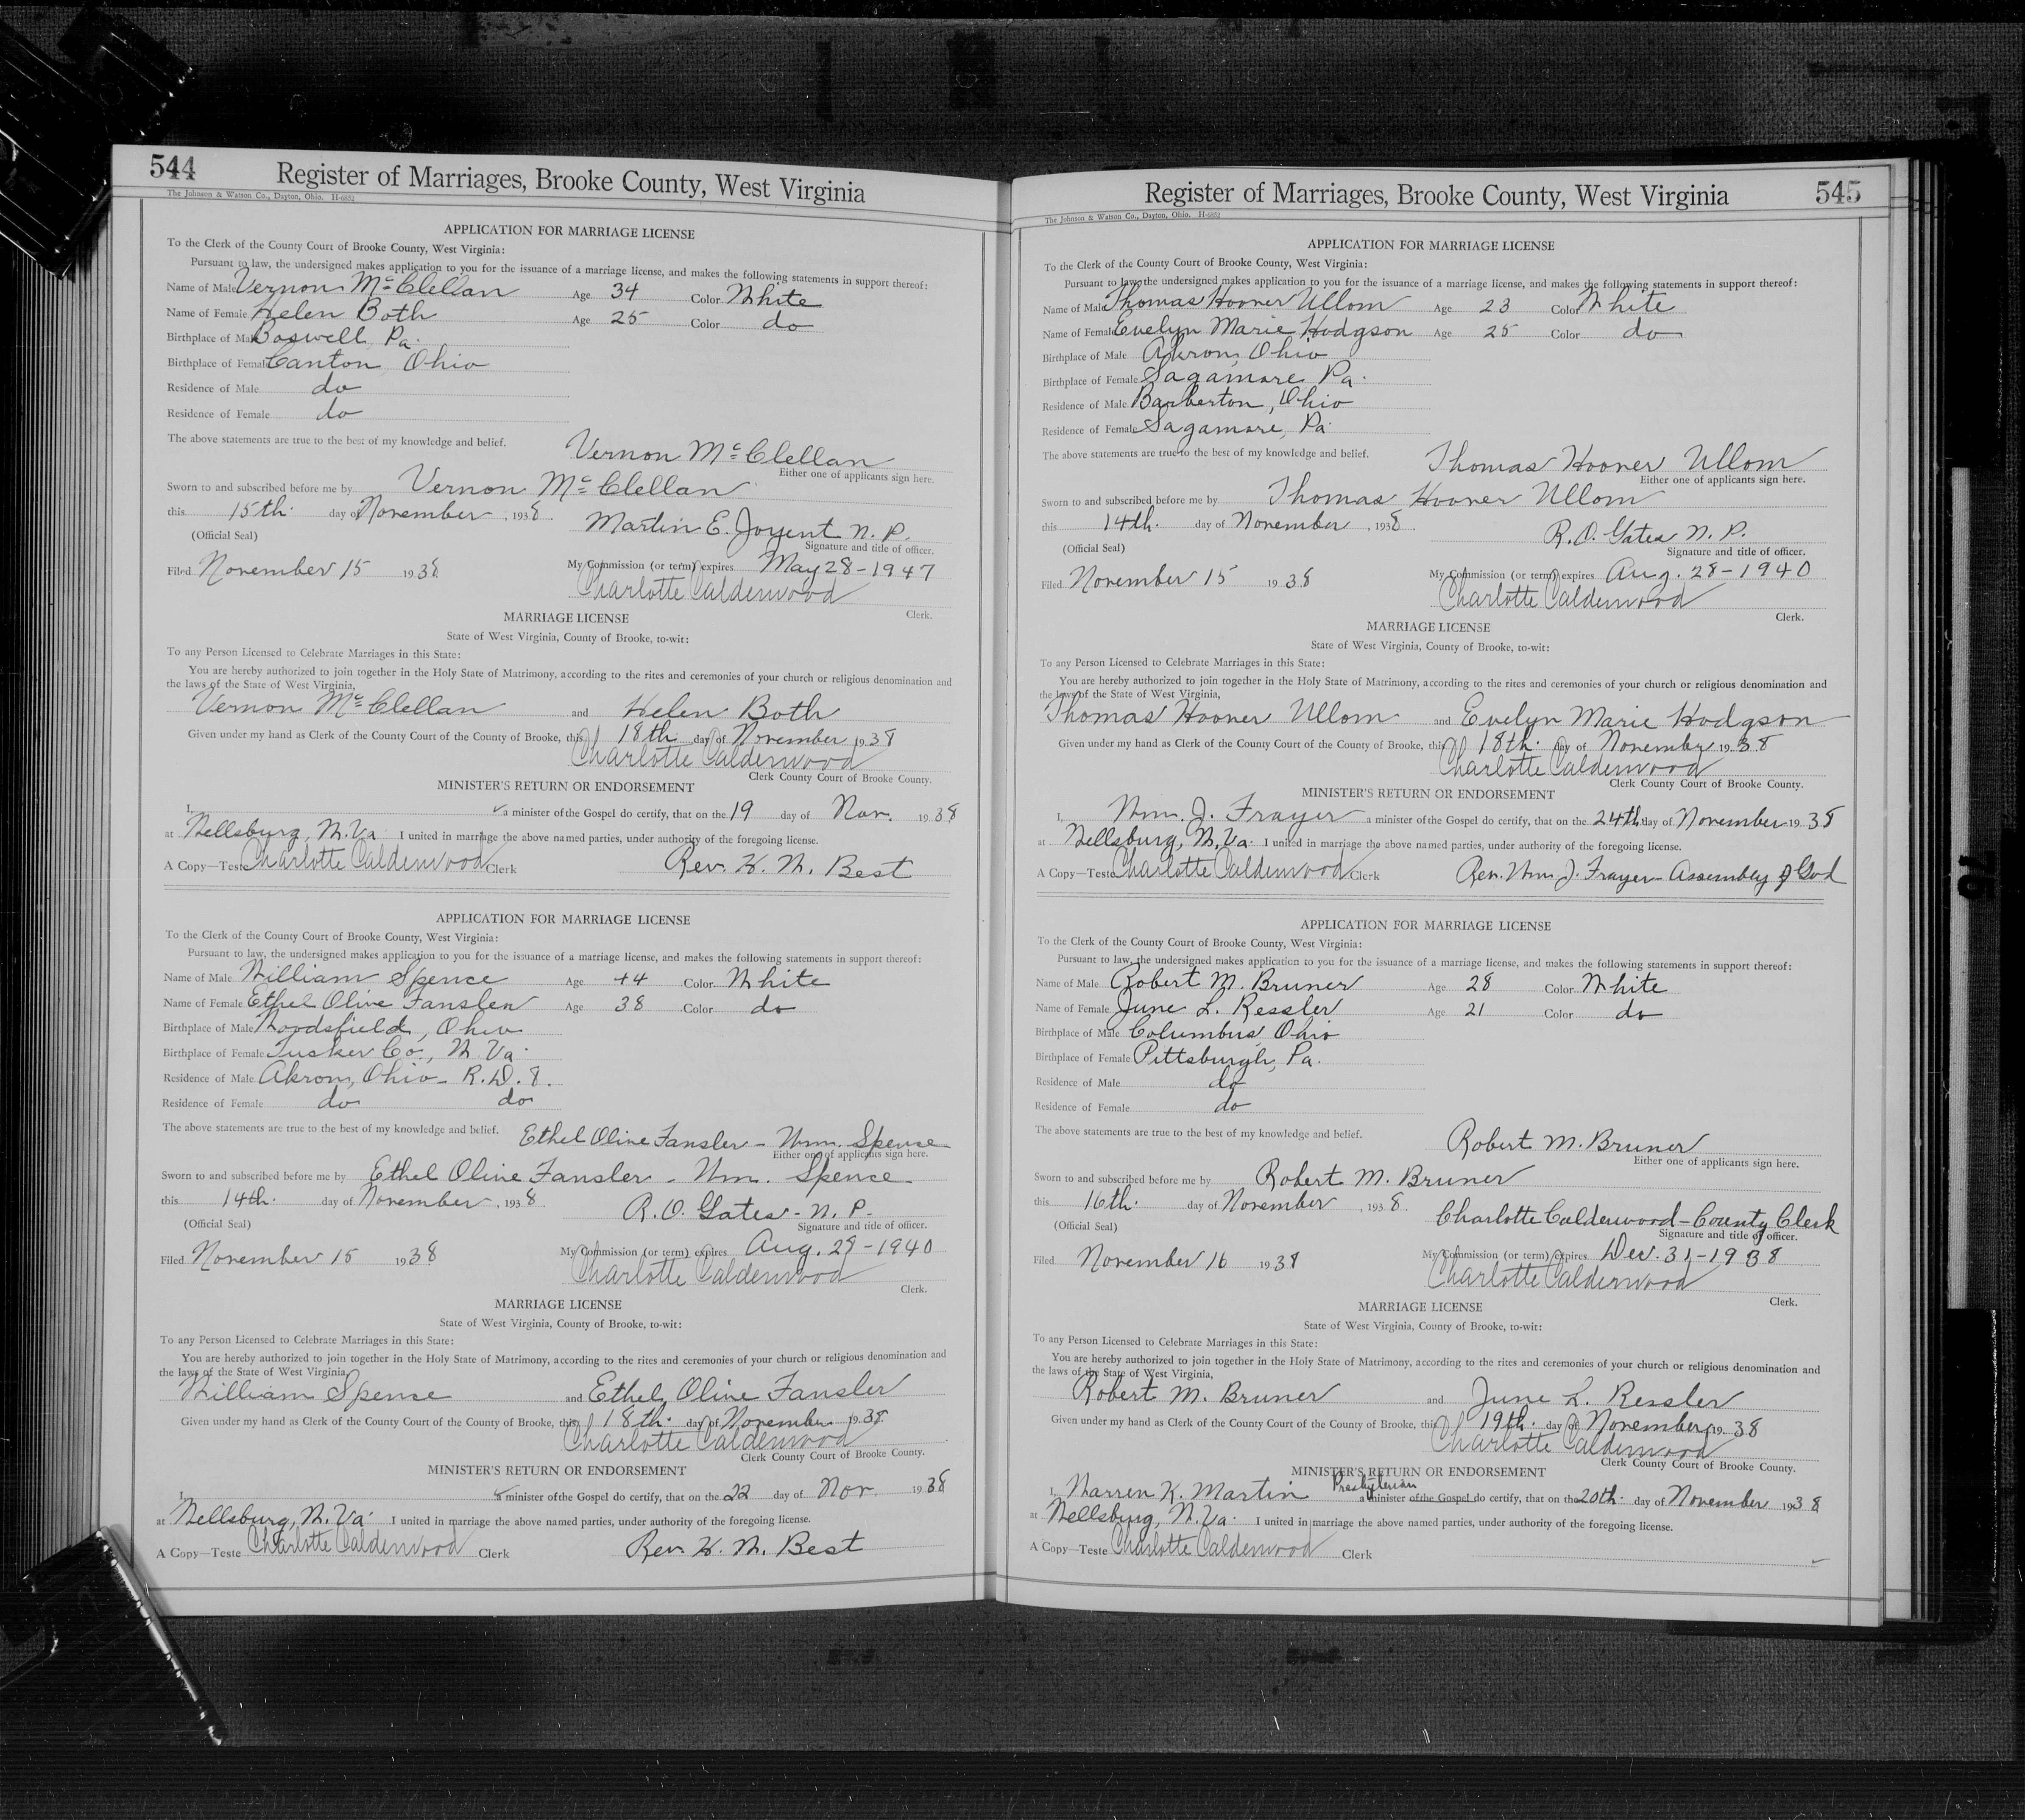 544 Register of Marriages, Brooke County, West Virginia
The Johnson & Watson Co., Dayton, Ohio. H-6852
APPLICATION FOR MARRIAGE LICENSE
To the Clerk of the County Court of Brooke County, West Virginia:
Pursuant to law, the undersigned makes application to you for the issuance of a marriage license, and makes the following statements in support thereof:
Name of Male Vernon McClellan Age 34 Color White
Name of Female Helen Both Age 25 Color do
Birthplace of Male Boswell, Pa.
Birthplace of Female Canton, Ohio
Residence of Male do
Residence of Female do
The above statements are true to the best of my knowledge and belief. Vernon McClellan
Either one of applicants sign here.
Sworn to and subscribed before me by Vernon McClellan
this 15th. day of November, 1938.
Martin E. N. P.
(Official Seal) Signature and title of officer.
Filed November 15 1938 My Commission (or term) expires May 28-1947
Charlotte Calderwood
Clerk.
MARRIAGE LICENSE
State of West Virginia, County of Brooke, to-wit:
To any Person Licensed to Celebrate Marriages in this State:
You are hereby authorized to join together in the Holy State of Matrimony, according to the rites and ceremonies of your church or religious denomination and
the laws of the State of West Virginia,
Vernon McClellan and Helen Both
Given under my hand as Clerk of the County Court of the County of Brooke, this 18th. day of November 1938
Charlotte Calderwood
Clerk County Court of Brooke County.
MINISTER'S RETURN OR ENDORSEMENT
I, a minister of the Gospel do certify, that on the 19 day of Nov. 1938
at Wellsburg, W. Va. I united in marriage the above named parties, under authority of the foregoing license.
A Copy—Teste Charlotte Calderwood Clerk Rev. H. W. Best
APPLICATION FOR MARRIAGE LICENSE
To the Clerk of the County Court of Brooke County, West Virginia:
Pursuant to law, the undersigned makes application to you for the issuance of a marriage license, and makes the following statements in support thereof:
Name of Male William Spence Age 44 Color White
Name of Female Ethel Olive Fansler Age 38 Color do
Birthplace of Male Woodsfield, Ohio
Birthplace of Female Tucker Co., W. Va.
Residence of Male Akron, Ohio - R.D. 8.
Residence of Female do do
The above statements are true to the best of my knowledge and belief. Ethel Olive Fansler - Wm. Spence
Either one of applicants sign here.
Sworn to and subscribed before me by Ethel Olive Fansler - Wm. Spence
this 14th. day of November, 1938.
R. O. Gates - N. P.
(Official Seal) Signature and title of officer.
Filed November 15 1938 My Commission (or term) expires Aug. 28-1940
Charlotte Calderwood
Clerk.
MARRIAGE LICENSE
State of West Virginia, County of Brooke, to-wit:
To any Person Licensed to Celebrate Marriages in this State:
You are hereby authorized to join together in the Holy State of Matrimony, according to the rites and ceremonies of your church or religious denomination and
the laws of the State of West Virginia,
William Spence and Ethel Olive Fansler
Given under my hand as Clerk of the County Court of the County of Brooke, this 18th. day of November 1938.
Charlotte Calderwood
Clerk County Court of Brooke County.
MINISTER'S RETURN OR ENDORSEMENT
I, a minister of the Gospel do certify, that on the 22 day of Nov. 1938
at Wellsburg, W. Va. I united in marriage the above named parties, under authority of the foregoing license.
A Copy—Teste Charlotte Calderwood Clerk Rev. H. W. Best
Register of Marriages, Brooke County, West Virginia 545
The Johnson & Watson Co., Dayton, Ohio. H-6852
APPLICATION FOR MARRIAGE LICENSE
To the Clerk of the County Court of Brooke County, West Virginia:
Pursuant to law, the undersigned makes application to you for the issuance of a marriage license, and makes the following statements in support thereof:
Name of Male Thomas Hoover Ullom Age 23 Color White
Name of Female Evelyn Marie Hodgson Age 25 Color do
Birthplace of Male Akron, Ohio
Birthplace of Female Sagamore, Pa.
Residence of Male Barberton, Ohio
Residence of Female Sagamore, Pa.
The above statements are true to the best of my knowledge and belief. Thomas Hoover Ullom
Either one of applicants sign here.
Sworn to and subscribed before me by Thomas Hoover Ullom
this 14th. day of November, 1938.
R. O. Gates N. P.
(Official Seal) Signature and title of officer.
Filed November 15 1938 My Commission (or term) expires Aug. 28-1940
Charlotte Calderwood
Clerk.
MARRIAGE LICENSE
State of West Virginia, County of Brooke, to-wit:
To any Person Licensed to Celebrate Marriages in this State:
You are hereby authorized to join together in the Holy State of Matrimony, according to the rites and ceremonies of your church or religious denomination and
the laws of the State of West Virginia,
Thomas Hoover Ullom and Evelyn Marie Hodgson
Given under my hand as Clerk of the County Court of the County of Brooke, this 18th. day of November 1938
Charlotte Calderwood
Clerk County Court of Brooke County.
MINISTER'S RETURN OR ENDORSEMENT
I, Wm. J. Frayer a minister of the Gospel do certify, that on the 24th. day of November 1938
at Wellsburg, W. Va. I united in marriage the above named parties, under authority of the foregoing license.
A Copy—Teste Charlotte Calderwood Clerk Rev. Wm. J. Frayer - Assembly of God
APPLICATION FOR MARRIAGE LICENSE
To the Clerk of the County Court of Brooke County, West Virginia:
Pursuant to law, the undersigned makes application to you for the issuance of a marriage license, and makes the following statements in support thereof:
Name of Male Robert M. Bruner Age 28 Color White
Name of Female June L. Ressler Age 21 Color do
Birthplace of Male Columbus, Ohio
Birthplace of Female Pittsburgh, Pa.
Residence of Male do
Residence of Female do
The above statements are true to the best of my knowledge and belief. Robert M. Bruner
Either one of applicants sign here.
Sworn to and subscribed before me by Robert M. Bruner
this 16th. day of November, 1938.
Charlotte Calderwood - County Clerk
(Official Seal) Signature and title of officer.
Filed November 16 1938 My Commission (or term) expires Dec. 31-1938
Charlotte Calderwood
Clerk.
MARRIAGE LICENSE
State of West Virginia, County of Brooke, to-wit:
To any Person Licensed to Celebrate Marriages in this State:
You are hereby authorized to join together in the Holy State of Matrimony, according to the rites and ceremonies of your church or religious denomination and
the laws of the State of West Virginia,
Robert M. Bruner and June L. Ressler
Given under my hand as Clerk of the County Court of the County of Brooke, this 19th. day of November 1938
Charlotte Calderwood
Clerk County Court of Brooke County.
MINISTER'S RETURN OR ENDORSEMENT
I, Warren K. Martin Presbyterian a minister of the Gospel do certify, that on the 20th. day of November 1938
at Wellsburg, W. Va. I united in marriage the above named parties, under authority of the foregoing license.
A Copy—Teste Charlotte Calderwood Clerk